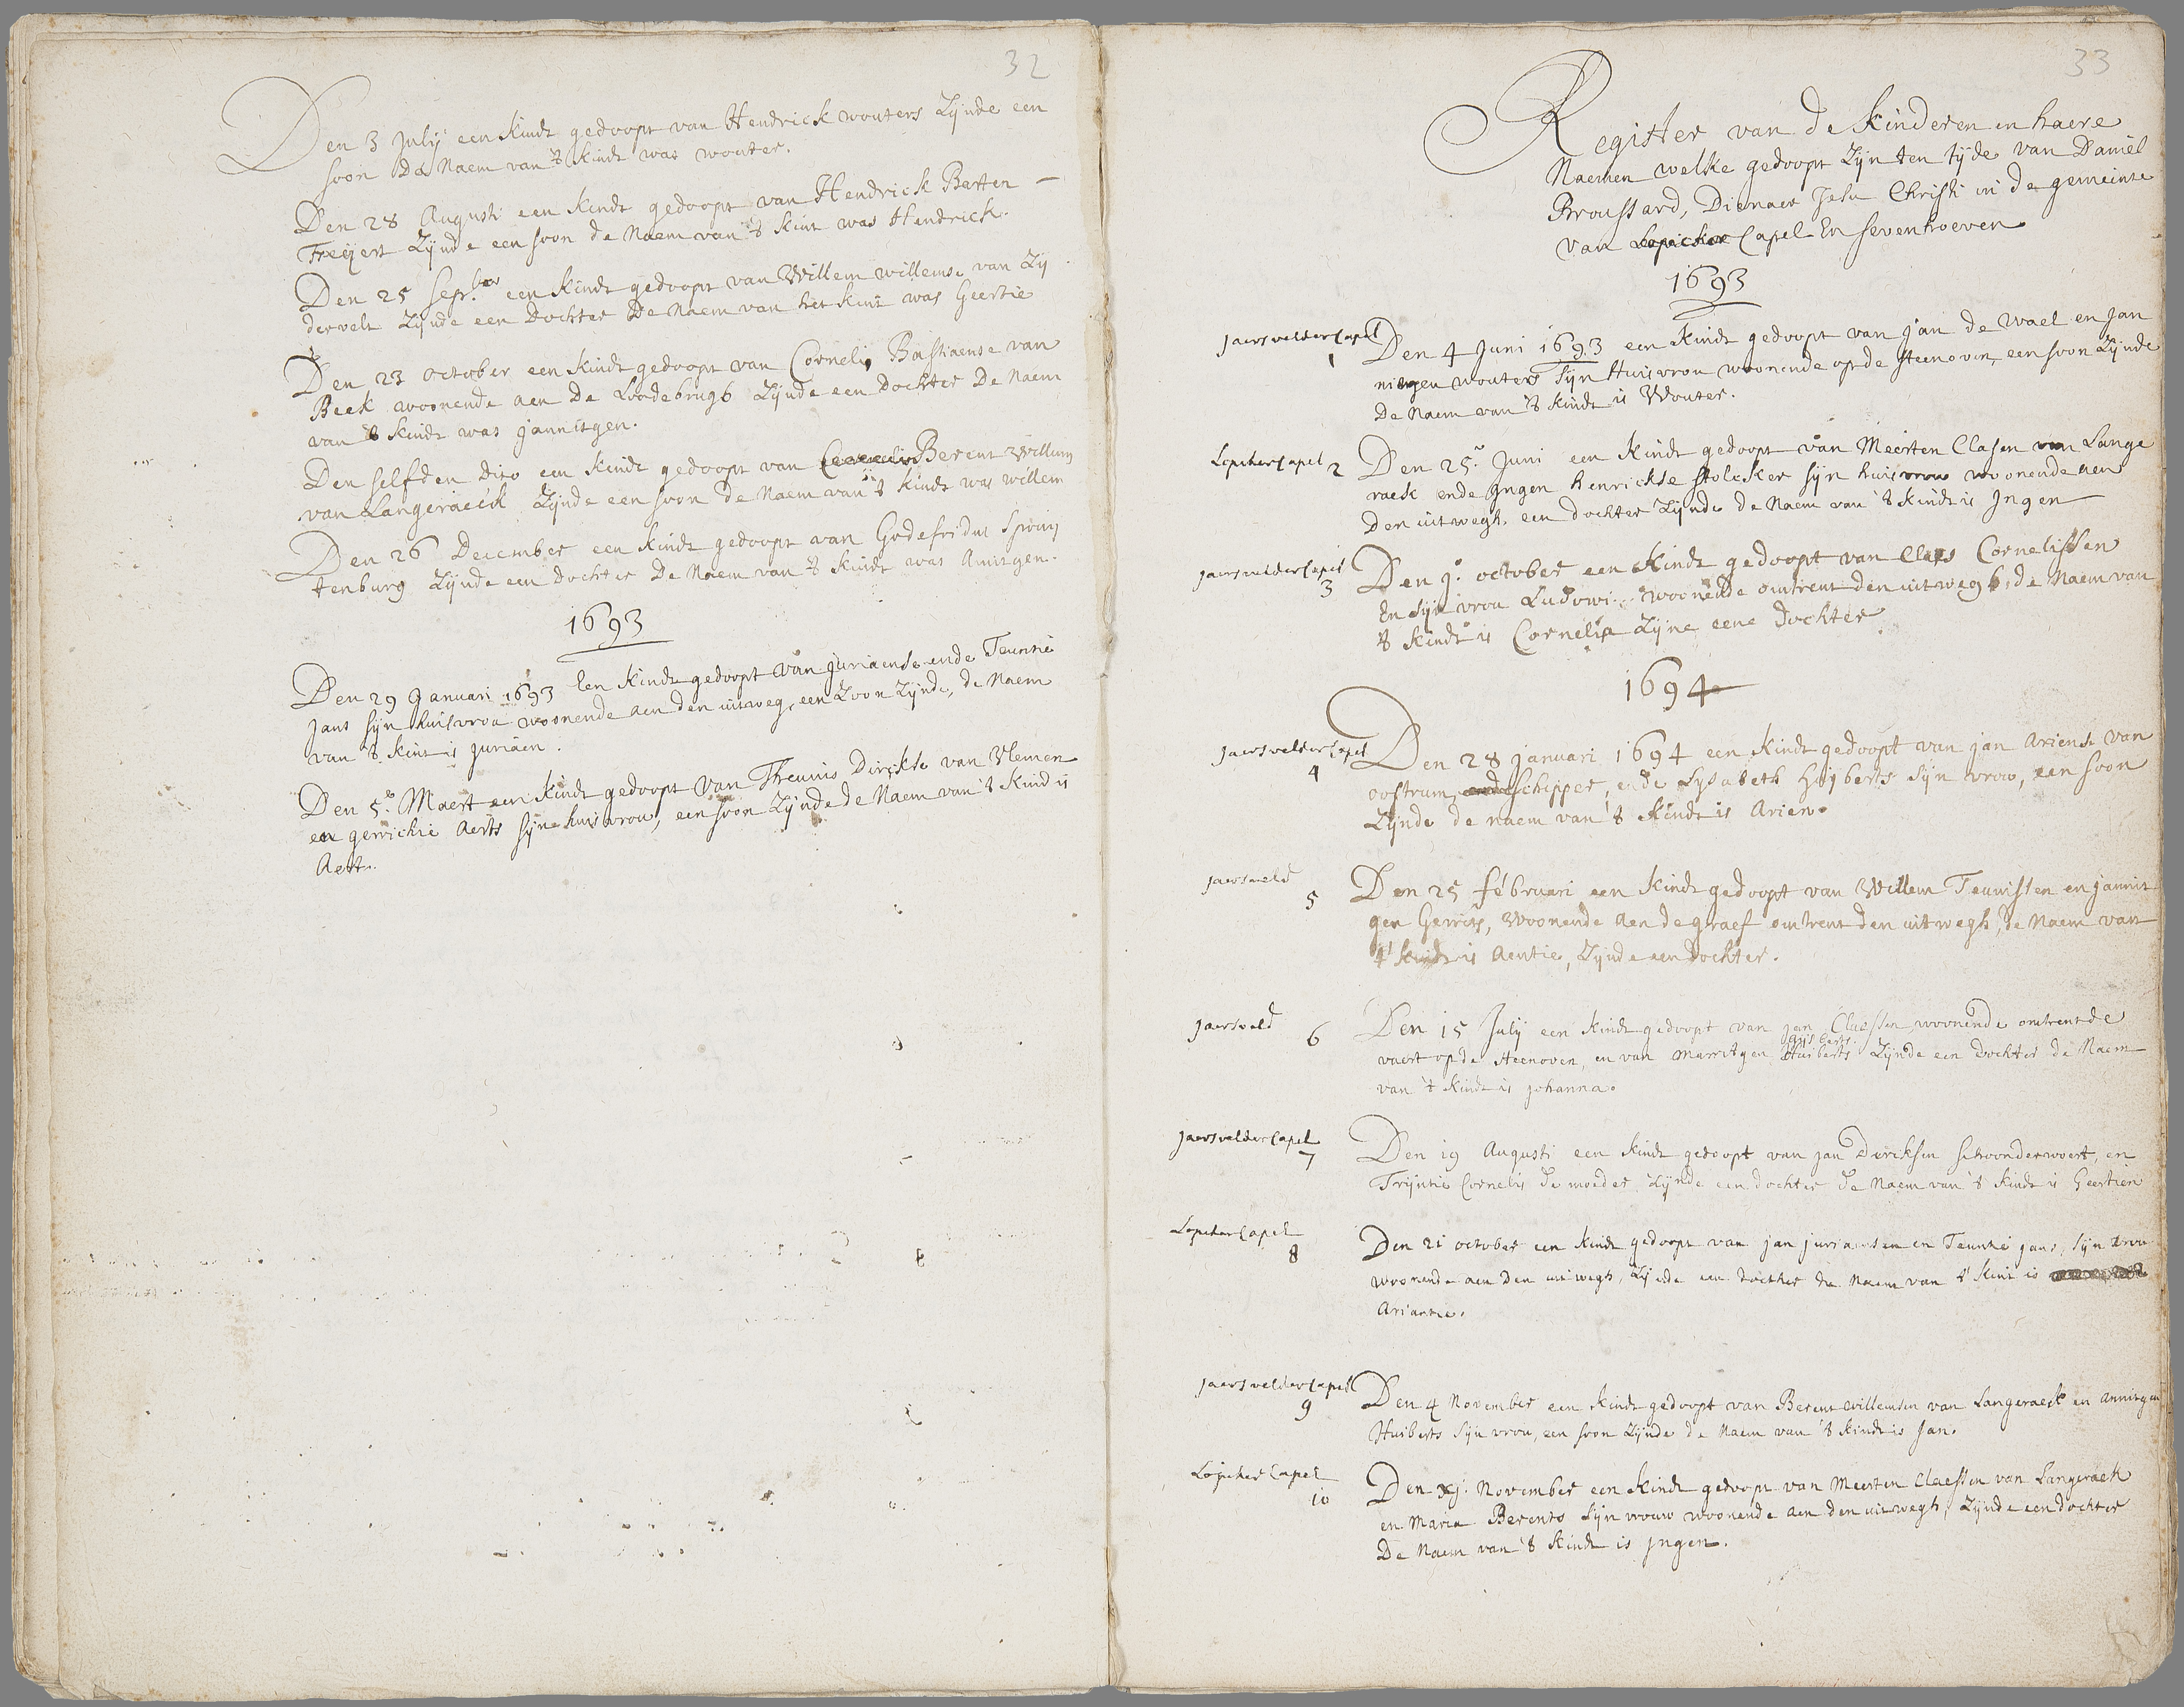 32
Den 3 july een kindt gedoopt van Hendrick wouters Zijnde een
soon De Naem van 't kindt was wouter.
Den 28 Augusti een kindt gedoopt van Hendrick Berten –
Freijert Zijnde een soon de Naem van 't kint was Hendrick.
Den 25 sepr.ber een kindt gedoopt van Willem willemse van Zij
dervelt Zijnde een Dochter De Naem van het kint was Geertie
Den 23 october een kindt gedoopt van Cornelis Bastiaense van
Beek woonende aen De Loodebrugh Zijnde een Dochter De Naem
van 't kindt was jannitgen.
Den selfden Dito een kindt gedoopt van Cornelis Berent Willems
van Langeraeck Zijnde een soon de Naem van 't kindt was willem
Den 26 December een kindt gedoopt van Godefridus Spruij
tenburg Zijnde een dochter De Naem van 't kindt was Annitgen.
1693
Den 29 Januari 1693 Een kindt gedoopt van juriaense ende Teuntie
jans sijn huisvrou woonende aen den uitweg, een Zoon Zijnde, de Naem
van 't kint is juriaen.
Den 5.e Maert een kindt gedoopt van Theunis Dirckse van Vlemen
en gerrichie Aerts sijne huisvrou, een soon Zijnde de Naem van 't kind is
Aert.
33
Register van de kinderen en haere
Naemen welke gedoopt Zijn ten tijde van Daniel
Broussard, Dienaer Jesu Christi in de gemeinte
van Lopicker Capel En sevenhoeven
1693
Jaersvelder Capel
1
Den 4 Juni 1693 een kindt gedoopt van jan de wael en jan
nitgen wouters sijn Huisvrou woonende op de steenoven, een soon Zijnde
De Naem van 't kindt is Wouter.
Lopeker Capel 2
Den 25. Juni een kindt gedoopt van Meerten Clasen van Lange
raeck ende Ingen henrickse stolcker sijn huisvrou woonende aen
Den uitwegh een dochter Zijnde de Naem van 't kindt is Ingen
jaersvelder Capel
3
Den 9. october een kindt gedoopt van Claes Cornelissen
En sijn vrou woonende omtrent den uitwegh, de Naem van
't kindt is Cornelia Zijne eene Dochter
1694
Jaersvelder Capel
4
Den 28 januari 1694 een kindt gedoopt van jan Ariense van
oostrum, ende schipper, ende Lysabeth Huijberts sijn vrou, een soon
Zijnde de naem van 't kindt is Arien.
jaersveld
5
Den 25 februari een kindt gedoopt van Willem Teunissen en jannit
gen Gerrits, Woonende aen de graef omtrent den uitwegh, de Naem van
't kindt is Aentie, Zijnde een dochter.
jaersveld
6
Den 15 July een kindt gedoopt van jan Claessen woonende omtrent de
vaert op de steenoven, en van Marritgen Huiberts Zijnde een dochter de Naem
van 't kindt is johanna.
jaersvelder Capel
7
Den 19 Augusti een kindt gedoopt van jan Dircksen schoonderwoert, en
Trijntie Cornelis de moeder Zijnde een dochter de Naem van 't kindt is Geertien
Lopeker Capel
8
Den 21 october een kindt gedoopt van jan juriaensen en Teuntie jans, sijn vrou
woonende aen den uitwegh, Zijnde een dochter de Naem van 't kint is
Ariantie.
jaersvelder Capel
9
Den 4 November een kindt gedoopt van Berent willemsen van Langeraeck en Annitgen
Huiberts sijn vrou, een soon Zijnde de Naem van 't kindt is Jan.
Lopeker Capel
10
Den November een kindt gedoopt van Meerten Claessen van Langeraek
en Maria Berents sijn vrouw woonende aen den uitwegh, Zijnde een dochter
De Naem van 't kindt is Ingen.